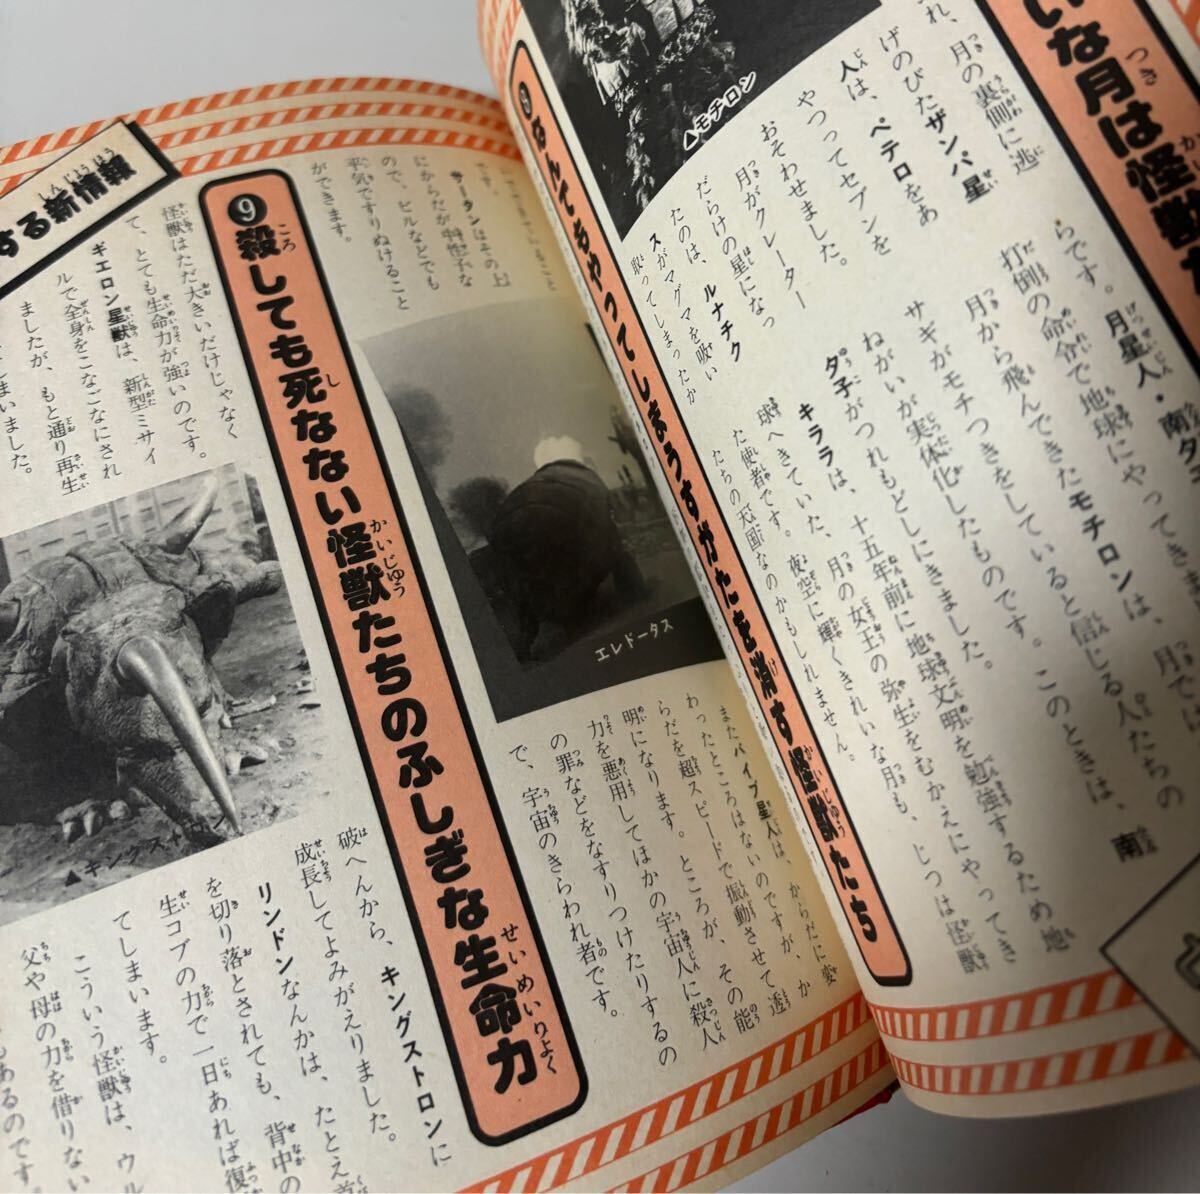 いな月は怪獣
れ、月の裏側に逃
げのびたザンパ星
人は、ペテロをあ
やつってセブンを
おそわせました。
月がクレーター
だらけの星になっ
たのは、ルナチク
スがマグマを吸い
取ってしまったか
▲モチロン
らです。月星人・南夕
打倒の命令で地球にやってきま
月から飛んできたモチロンは、月では
サギがモチつきをしていると信じる人たちの
ねがいが実体化したものです。このときは、南
夕子がつれもどしにきました。
キララは、十五年前に地球文明を勉強するため地
球へきていた、月の女王の弥生をむかえにやってき
た使者です。夜空に輝くきれいな月も、じつは怪獣
たちの天国なのかもしれません。
なんでもやってしまうすがたを消す怪獣たち
エレドータス
サータンはその上
にからだが特殊な
ので、ビルなどでも
平気ですりぬけること
ができます。
またバイブ星人は、からだに変
わったところはないのですが、か
らだを超スピードで振動させて透
明になります。ところが、その能
力を悪用してほかの宇宙人に殺人
の罪などをなすりつけたりするの
で、宇宙のきらわれ者です。
❾殺しても死なない怪獣たちのふしぎな生命力
する新情報
怪獣はただ大きいだけじゃなく
て、とても生命力が強いのです。
ギエロン星獣は、新型ミサイ
ルで全身をこなごなにされ
ましたが、もと通り再生
しまいました。
▲キングストロン
破へんから、キングストロンに
成長してよみがえりました。
リンドンなんかは、たとえ首
を切り落とされても、背中の
生コブの力で一日あれば復
てしまいます。
こういう怪獣は、ウル
父や母の力を借りない
あるのです